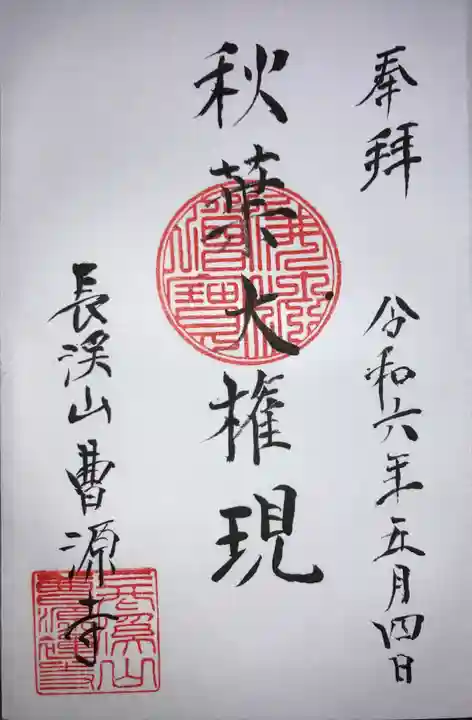 奉拝
令和六年五月四日
秋葉大権現
長渓山曹源寺
佛法僧寶